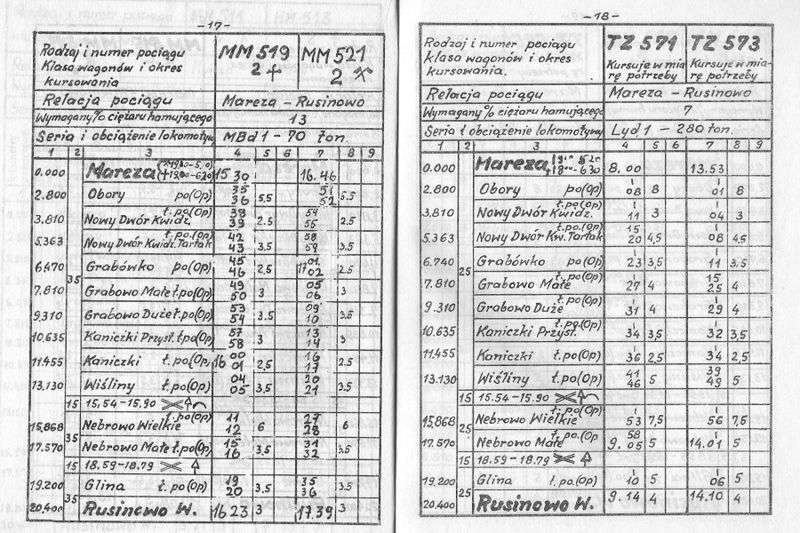 -17-
Rodzaj i numer pociągu MM 519 MM 521
Klasa wagonów i okres 2 2
kursowania
Relacja pociągu Mareza - Rusinowo
Wymagany % ciężaru hamującego 13
Seria i obciążenie lokomotywy MBd1 - 70 ton.
1 2 3 4 5 6 7 8 9
0.000 Mareza 15 30 16.46
2.800 Obory po(Op) 35 36 5,5 51 52 5.5
3.810 Nowy Dwór Kwidz. t.po(Op) 38 39 2.5 54 55 2.5
5.363 Nowy Dwór Kwidz. Tartak t.po.(Op) 42 43 3.5 58 59 3.5
6.470 Grabówko po(Op) 45 46 2,5 17 01 02 2.5
35
7.810 Grabowo Małe t.po(Op) 49 50 3 05 06 3
9,310 Grabowo Duże t.po(Op) 53 54 3.5 09 10 3.5
10,635 Kaniczki Przyst. t.po(Op) 57 58 3 13 14 3
11.455 Kaniczki t.po(Op) 16 00 01 2,5 16 17 2.5
13,130 Wiśliny t.po(Op) 04 05 3,5 20 21 3.5
15 15,54-15.90
15,868 Nebrowo Wielkie t.po(Op) 11 12 6 27 28 6
35
17.570 Nebrowo Małe t.po(Op) 15 16 3.5 31 32 3.5
15 18.59-18.79
19.200 Glina t.po(Op) 19 20 3.5 35 36 3.5
35
20,400 Rusinowo W. 16 23 3 17.39 3
-18-
Rodzaj i numer pociągu TZ 571 TZ 573
klasa wagonów i okres Kursuje w mia Kursuje w mia-
kursowania. rę potrzeby rę potrzeby
Relacja pociągu Mareza - Rusinowo
Wymagany % ciężaru hamującego 7
Seria i obciążenie lokomotywy Lyd1 - 280 ton.
1 2 3 4 5 6 7 8 9
0.000 Mareza 8.00 13.53
2.800 Obory po(Op) 08 8 01 8
3.810 Nowy Dwór Kwidz. t.po(Op) 11 3 04 3
5.363 Nowy Dwór Kw. Tartak t.po(Op) 15 20 4,5 08 4,5
6.740 Grabówko po(Op) 23 3,5 11 3.5
25
7.810 Grabowo Małe t.po(Op) 27 4 15 25 4
9.310 Grabowo Duże t.po(Op) 31 4 29 4
10.635 Kaniczki Przyst. t.po(Op) 34 3,5 32 3,5
11.455 Kaniczki t.po(Op) 36 2,5 34 2,5
13.130 Wiśliny t.po(Op) 41 46 5 39 49 5
15 15.54-15.90
15,868 Nebrowo Wielkie t.po(Op) 53 7,5 56 7,5
25
17.570 Nebrowo Małe t.po.(Op) 58 9.05 5 14.01 5
15 18.59-18.79
19,200 Glina t.po(Op) 10 5 06 5
25
20.400 Rusinowo W. 9.14 4 14.10 4